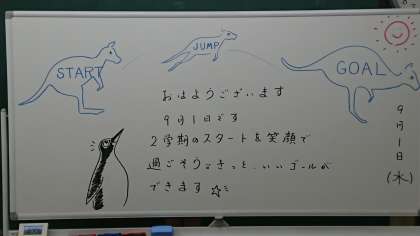 START
JUMP
GOAL
おはようございます
9月1日です
2学期のスタートを笑顔で
過ごそうきっと、いいゴールが
できます
9月1日(水)